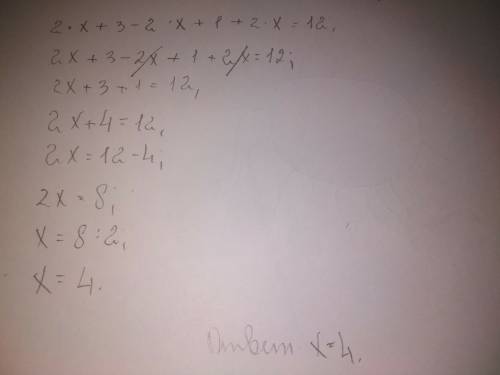 2·x+3-2·x+1+2·x=12,
2x+3-2x+1+2x=12;
2x+3+1=12,
2x+4=12,
2x=12-4;
2x=8;
x=8:2,
x=4.
Ответ x=4.